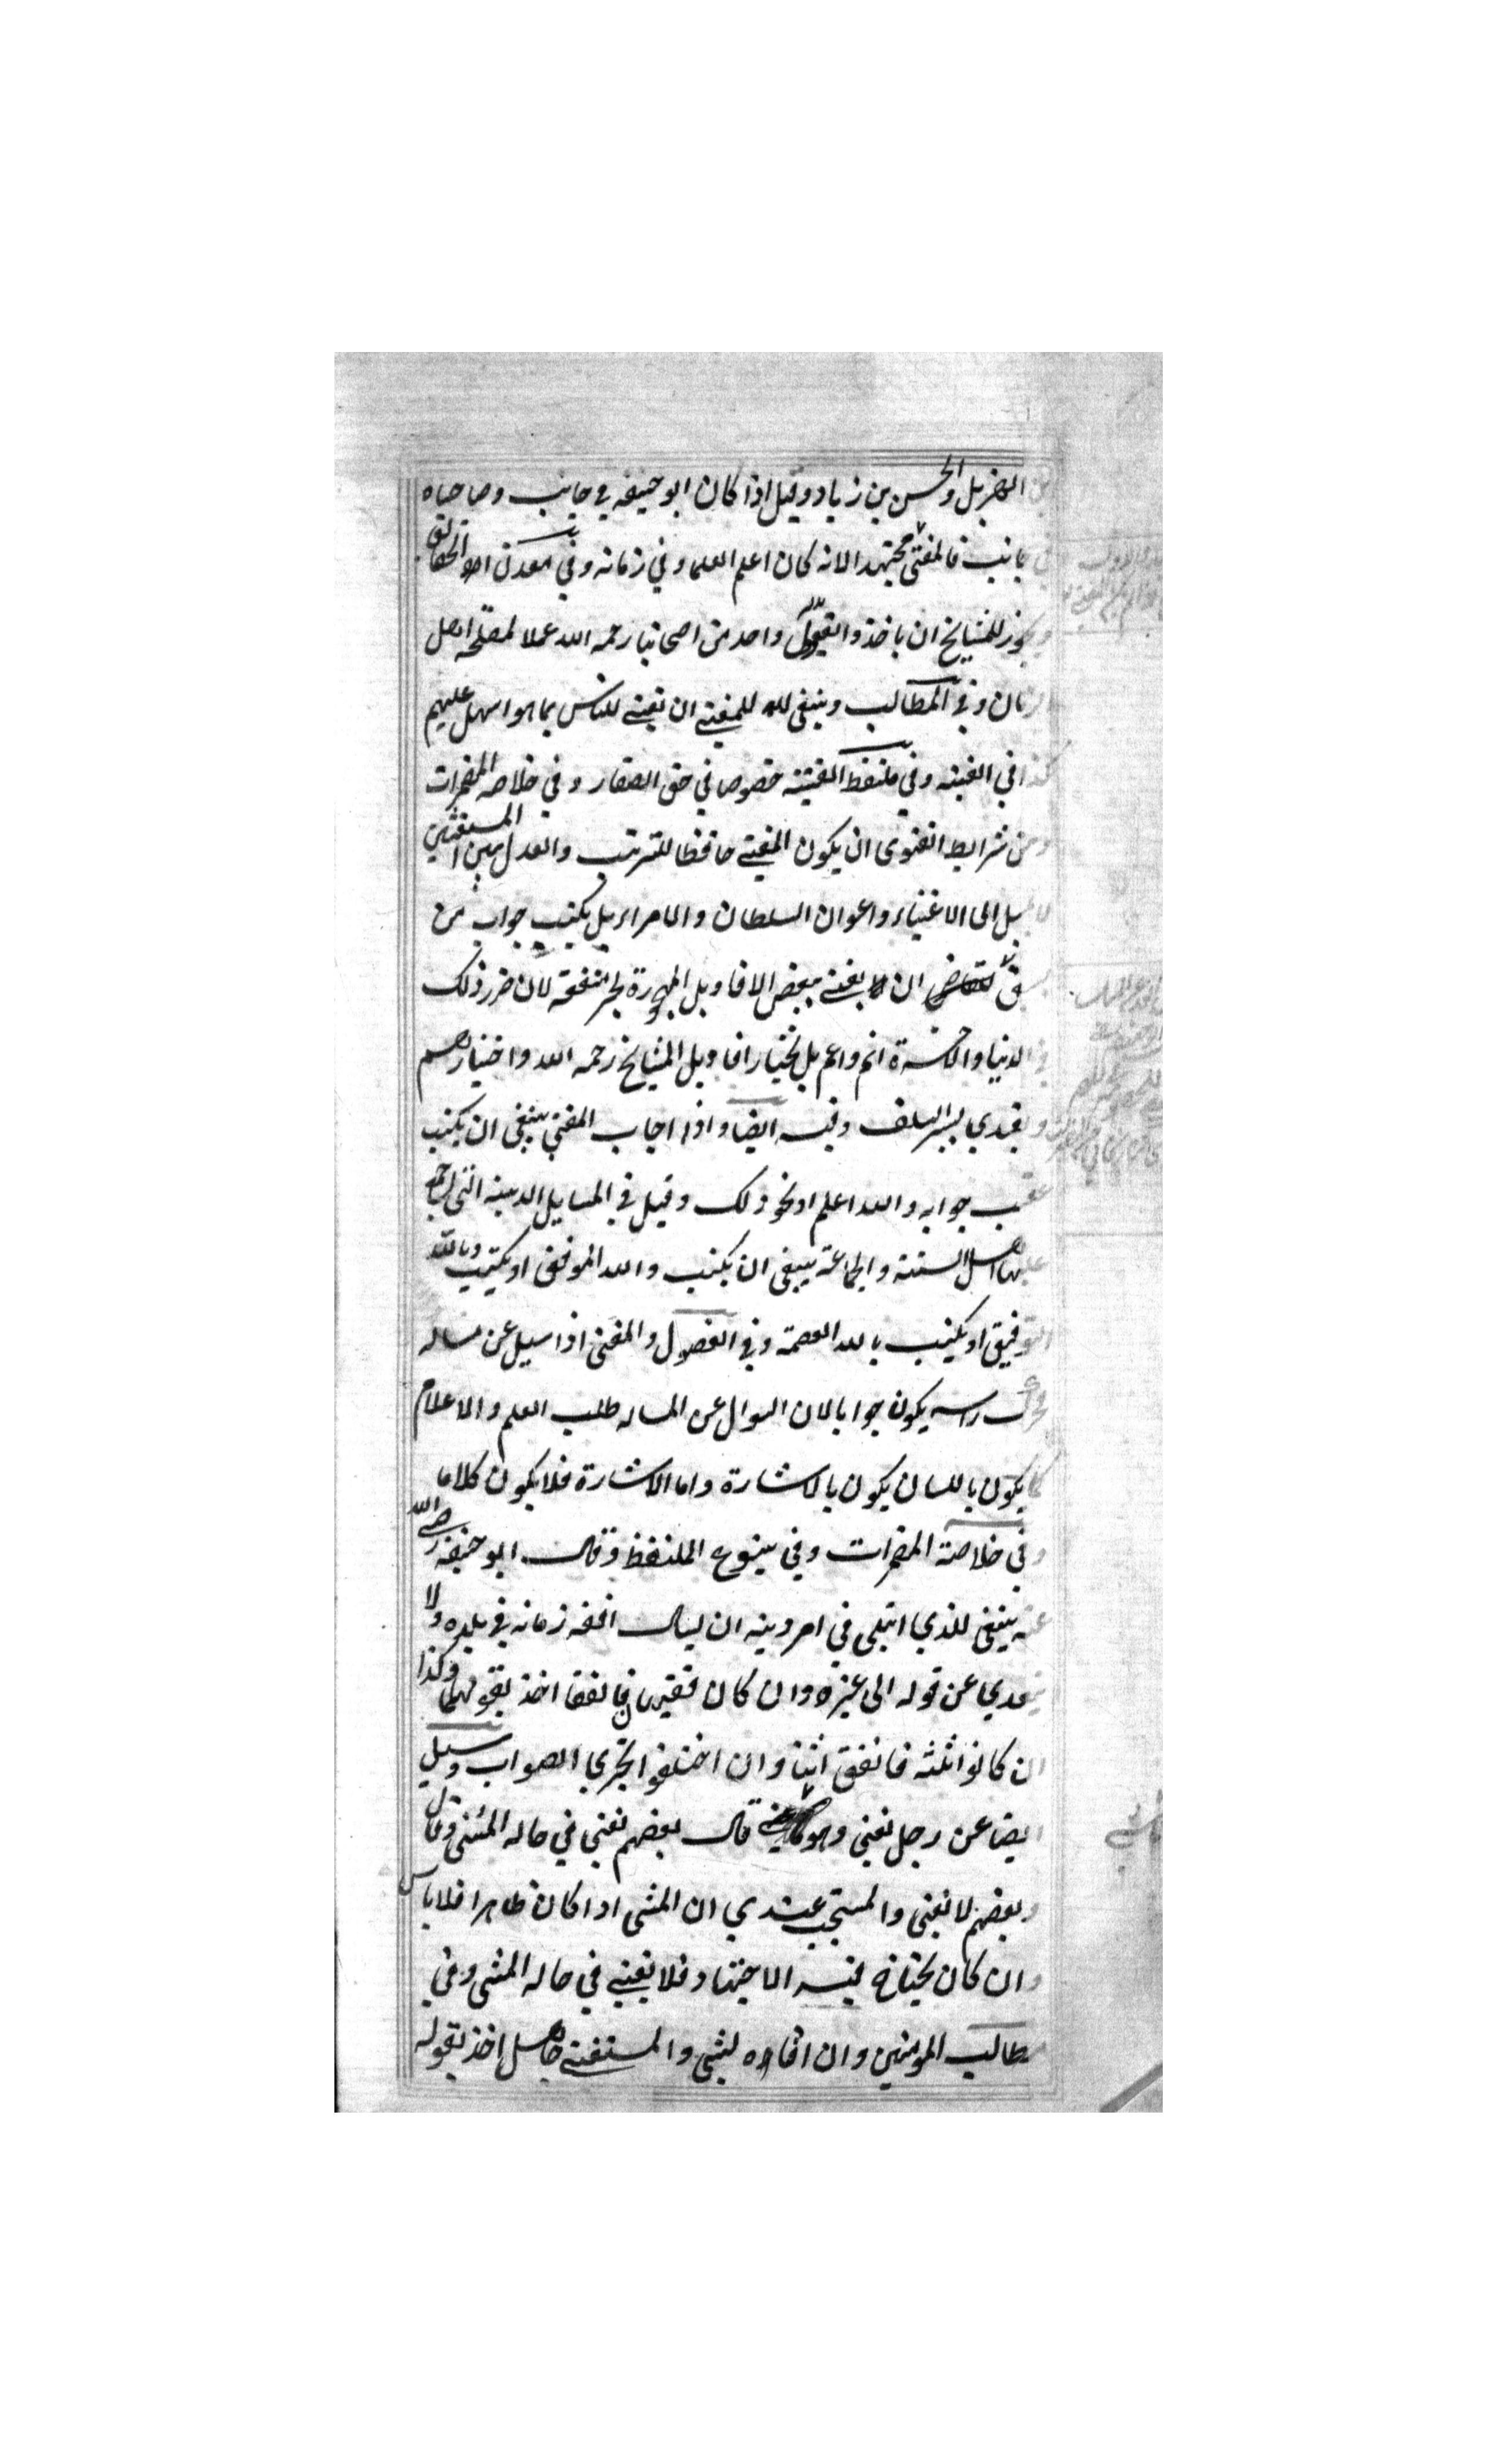 الهزيل والحسن بن زياد وقيل اذا كان ابو حنيفه في جانب وصاحباه
جانب فالمفتى مجتهد الانه كان اعلم العلماء في زمانه وفي معدن الحقائق
ويجوز للمشايخ ان ياخذوا بقول واحد من اصحابنا رحمه الله عملا لمصلحه اهل
الزمان وفي المطالب وينبغى للمفتے ان يفتے للناس بما هو اسهل عليهم
كذا في القنيه وفي ملتقط القنيته خصوصا في حق الصغار وفي خلاصه المضمرات
ومن شرايط الفتوى ان يكون المفتے حافظا للترتيب والعدل بين المستفتين
لا يميل الى الاغنياء واعوان السلطان والامراء بل يكتب جواب من
سبق ان لا يفتے ببعض الاقاويل المهجورة لجر منفعة لان ضرر ذلك
في الدنيا والاخرة اتم واعم بل يختار اقاويل المشايخ رحمه الله واختيارهم
ويقتدي بسير السلف وفيه ايضا واذا اجاب المفتى ينبغى ان يكتب
عقيب جوابه والله اعلم او نحو ذلك وقيل في المسايل الدينيه التى اجمع
عليها اهل السنته والجماعة ينبغى ان يكتب والله الموفق او يكتب وبالله
التوفيق او يكتب بالله العصمة وفي الفصول والمفتى اذا سيل عن مساله
فحرك راسه يكون جوابا لان السوال عن المساله طلب العلم والاعلام
كما يكون باللسان يكون بالاشارة واما الاشارة فلا يكون كلاما
وفي خلاصة المضمرات وفي ينبوع الملتقط وقال ابو حنيفه رضے الله
عنه ينبغى للذي ابتلى في امر دينه ان يسال افقه زمانه في بلده ولا
يتعدي عن قوله الى غيره وان كان فقيهان فاتفقا اخذ بقولهما وكذا
ان كانوا ثلثه فاتفق اثنا وان اختلفوا تحري الصواب وسيل
ايضا عن رجل يفتى وهو قال بعضهم يفتى في حاله المشى وقال
وبعضهم لا يفتى والمستحب عندي ان المشى اذا كان ظاهرا فلا باس
وان كان يحتاج فيه الاجتهاد فلا يفتے في حاله المشى وفي
مطالب المومنين وان افتاه بشي والمستفتے جاهل اخذ بقوله